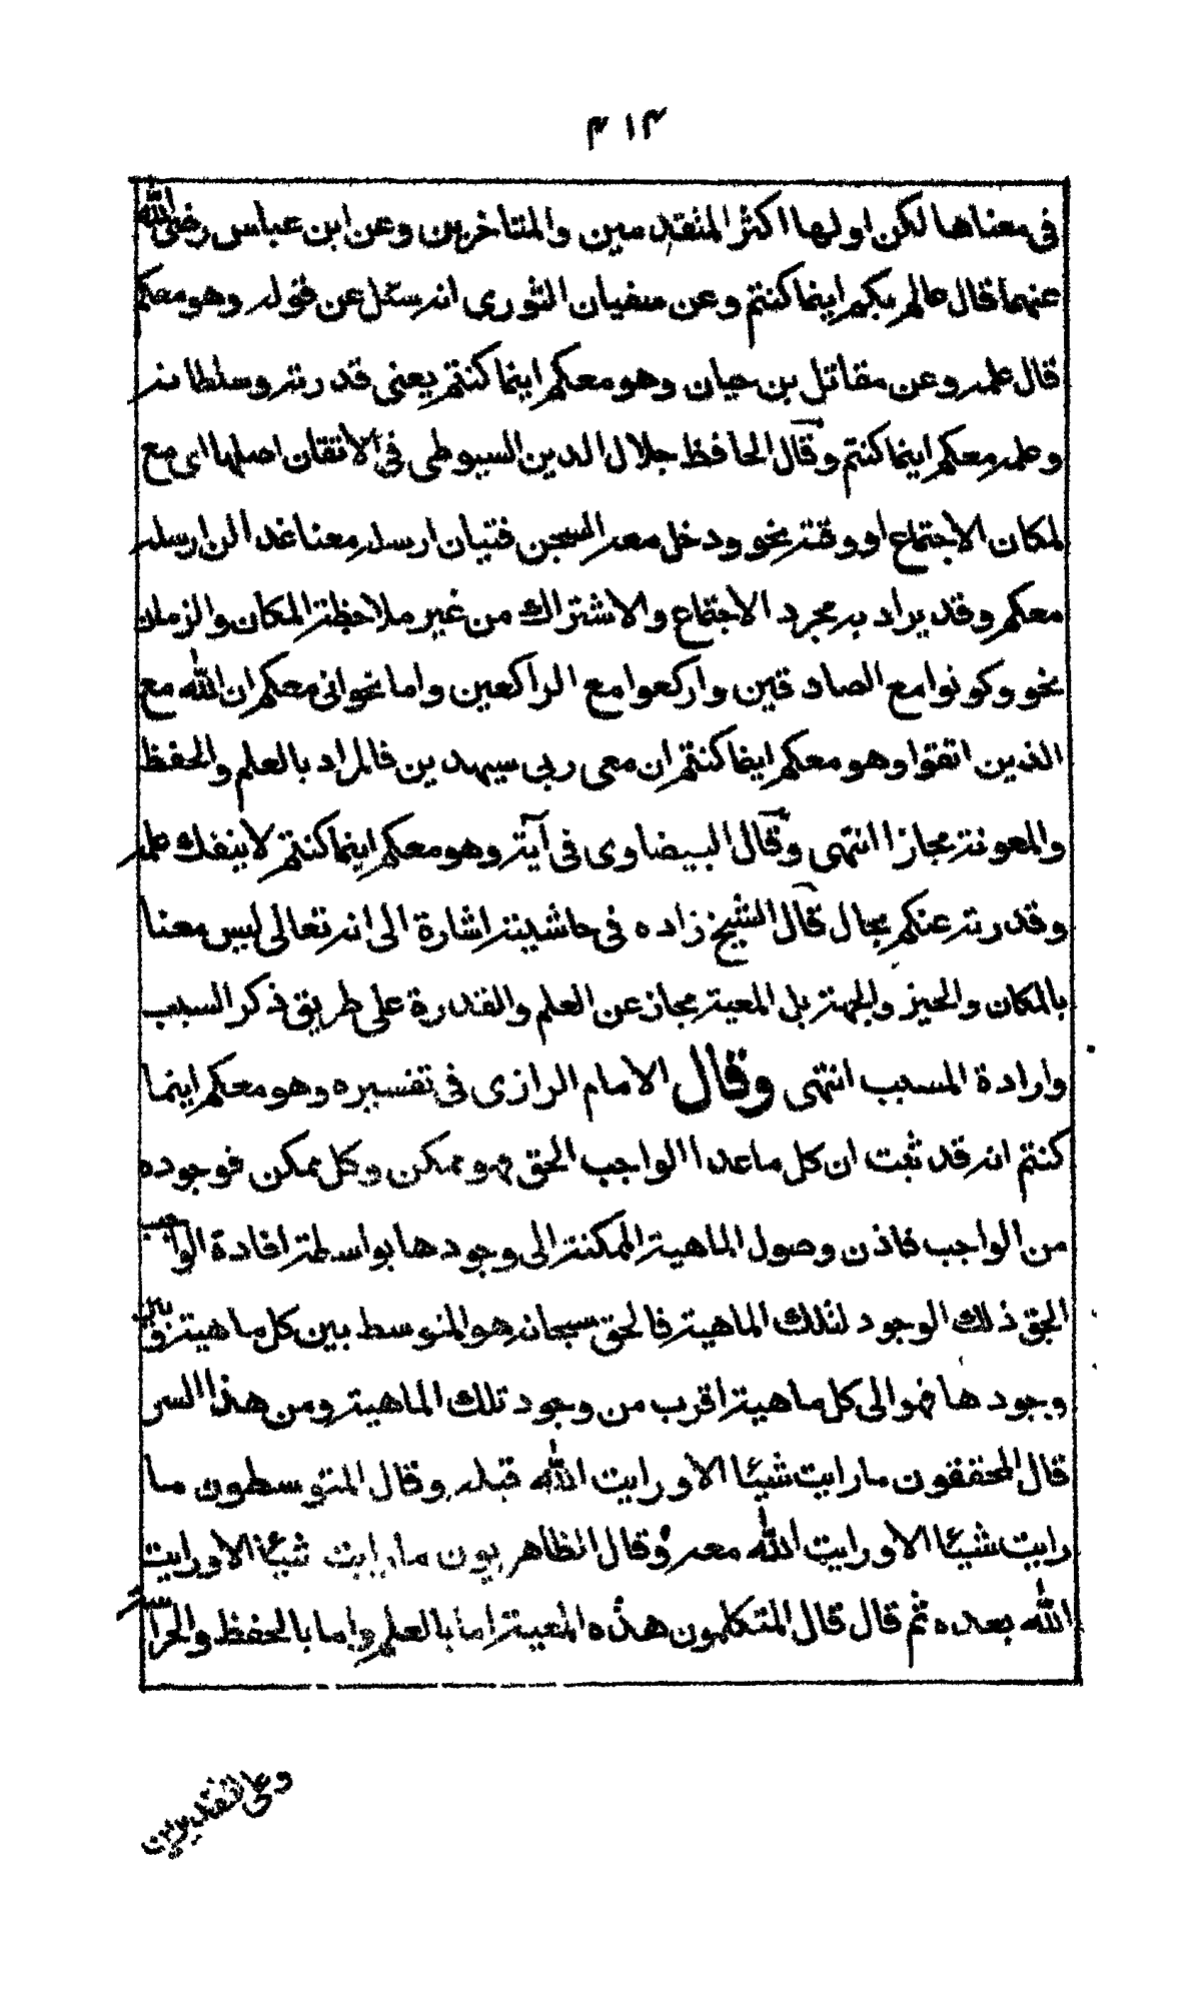 ٣١٣
فى معناها لكن اولها اكثر المتقدمين والمتاخرين وعن ابن عباس رضى الله
عنهما قال عالم بكم اينما كنتم وعن سفيان الثورى انه سئل عن قوله وهو معكم
قال علمه وعن مقاتل بن حيان وهو معكم اينما كنتم يعنى قدرته وسلطانه
وعلمه معكم اينما كنتم وقال الحافظ جلال الدين السيوطى فى الاتقان اصلها اى مع
لمكان الاجتماع او وقته نحو ودخل معه السجن فتيان ارسله معنا غدا لن ارسله
معكم وقد يراد به مجرد الاجتماع والاشتراك من غير ملاحظة المكان والزمان
نحو وكونوا مع الصادقين واركعوا مع الراكعين واما نحو انى معكم ان الله مع
الذين اتقوا وهو معكم اينما كنتم ان معى ربى سيهدين فالمراد بالعلم والحفظ
والمعونة مجازا انتهى وقال البيضاوى فى آية وهو معكم اينما كنتم لا ينفك علمه
وقدرته عنكم بحال قال الشيخ زاده فى حاشيته اشارة الى انه تعالى ليس معنا
بالمكان والحيز والجهة بل المعية مجاز عن العلم والقدرة على طريق ذكر السبب
وارادة المسبب انتهى وقال الامام الرازى فى تفسيره وهو معكم اينما
كنتم انه قد ثبت ان كل ما عدا الواجب الحق فهو ممكن وكل ممكن فوجوده
من الواجب فاذن وصول الماهية الممكنة الى وجودها بواسطة افادة الواجب
الحق ذلك الوجود لتلك الماهية فالحق سبحانه هو المتوسط بين كل ماهية وبين
وجودها فهو الى كل ماهية اقرب من وجود تلك الماهية ومن هذا السر
قال المحققون ما رايت شيئا الا ورايت الله قبله وقال المتوسطون ما
رايت شيئا الا ورايت الله معه وقال الظاهريون ما رايت شيئا الا ورايت
الله بعده ثم قال قال المتكلمون هذه المعية اما بالعلم واما بالحفظ والحراسة
وعلى التقديرين